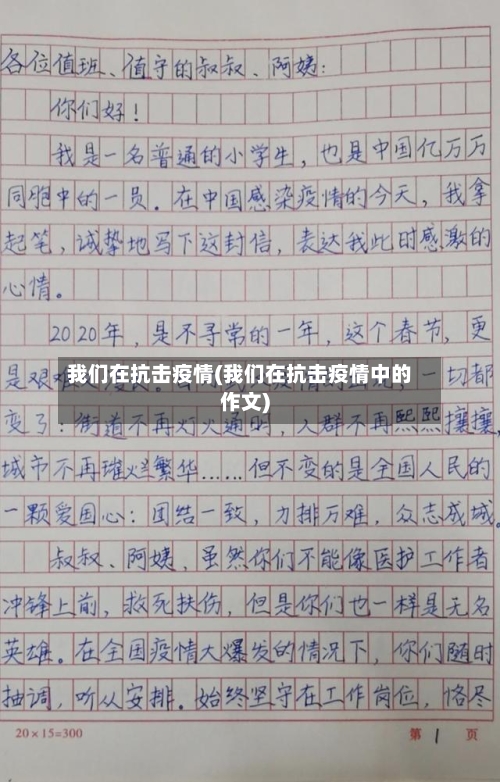 各位值班、值守的叔叔、阿姨:
你们好!
我是一名普通的小学生,也是中国亿万万
同胞中的一员。在中国感染疫情的今天,我拿
起笔,诚挚地写下这封信,表达我此时感激的
心情。
2020年,是不寻常的一年,这个春节,更
我们在抗击疫情(我们在抗击疫情中的
作文)
是艰难 一切都
变了:街道不再灯火通明,人群不再熙熙攘攘,
城市不再璀烂繁华……但不变的是全国人民的
一颗爱国心:团结一致,力排万难,众志成城。
叔叔、阿姨,虽然你们不能像医护工作者
冲锋上前,救死扶伤,但是你们也一样是无名
英雄。在全国疫情大爆发的情况下,你们随时
抽调,听从安排。始终坚守在工作岗位,恪尽
20×15=300 第 1 页